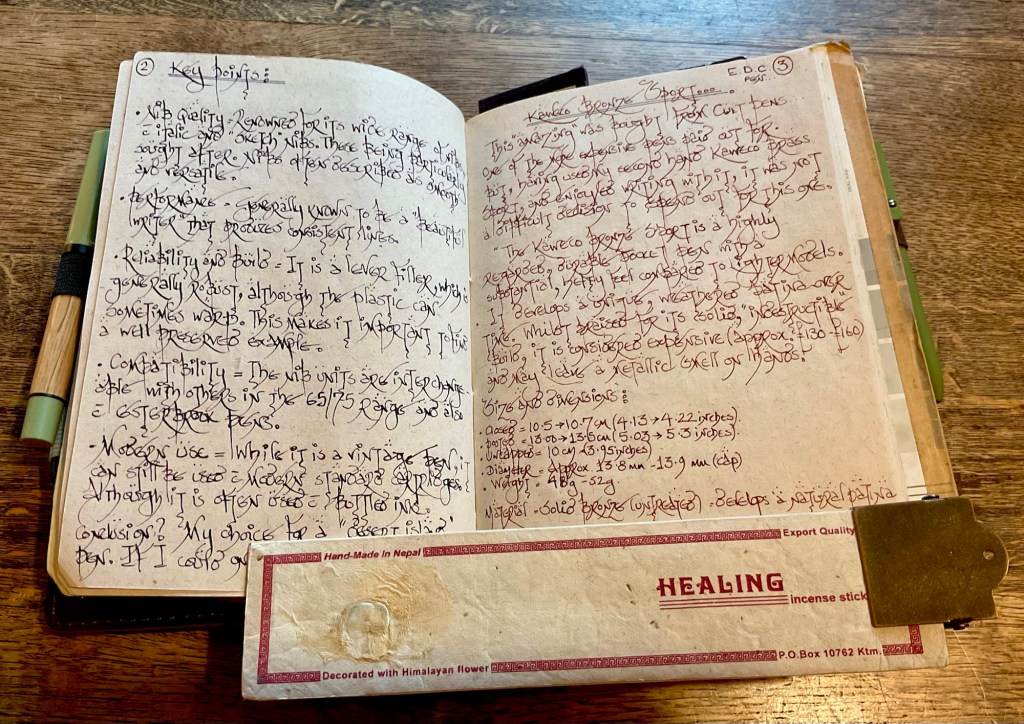 2
Key points:
• Nib Quality = Renowned for its wide range of nibs
= italic and sketch nibs. These being particularly
sought after. Nibs often described as smooth
and versatile.
• Performance = Generally known to be a "beautiful
writer" that produces consistent lines.
• Reliability and Build = It is a lever filler, which is
generally robust, although the plastic can
sometimes warp. This makes it important to find
a well preserved example.
• Compatibility = The nib units are interchange
able with others in the 65/75 range and also
= Esterbrook pens?
• Modern use = While it is a vintage pen, it
can still be used = modern standard cartridges.
Although it is often used = bottled ink.
Conclusion? My choice for a "desert island"
pen. If I could on
E.D.C. 3
pen...
Kaweco Bronze Sport....
This amazing was bought from Cult Pens.
One of the more expensive pens paid out for.
But, having used my second hand Kaweco Brass
Sport, and enjoyed writing with it, it was not
a difficult decision to spend out for this one.
"The Kaweco Bronze Sport is a highly
regarded, durable pocket pen with a
substantial, hefty feel compared to lighter models.
• It develops a unique, weathered patina over
time. Whilst praised for its solid, "indestructible
build, it is considered expensive (approx. £130 - £160)
and may leave a metallic smell on hands."
Size and dimensions:
• Closed = 10.5 → 10.7 cm (4.13 → 4.22 inches).
• Posted = 13.00 → 13.5 cm (5.03 → 5.3 inches).
• Uncapped = 10 cm (3.95 inches)
• Diameter = approx. 13.8 mm - 13.9 mm (cap)
• Weight = 48g - 52g
Material = Solid bronze (untreated) = Develops a natural patina
Hand-Made in Nepal
Export Quality
HEALING
incense stick
Decorated with Himalayan flower
P.O.Box 10762 Ktm.